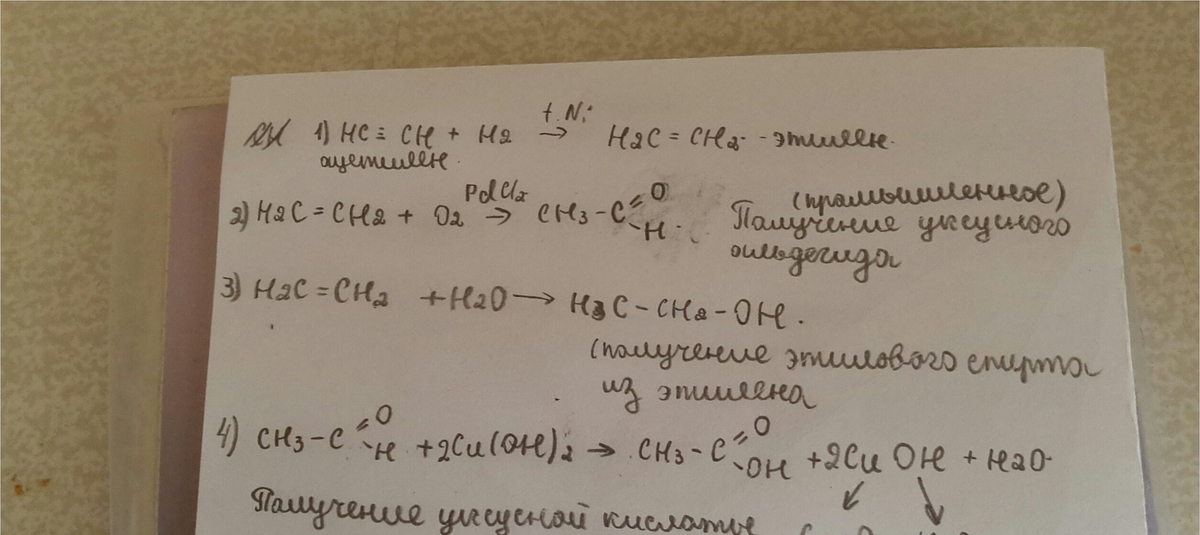 1) HC ≡ CH + H2 t. Ni → H2C = CH2 - этилен.
ацетилен.
2) H2C = CH2 + O2 PdCl2 → CH3 - C =O -H. (промышленное)
Получение уксусного
альдегида
3) H2C = CH2 + H2O → H3C - CH2 - OH.
(получение этилового спирта
из этилена
4) CH3 - C =O -H + 2Cu(OH)2 → CH3 - C =O -OH + 2Cu OH + H2O
Получение уксусной кислоты